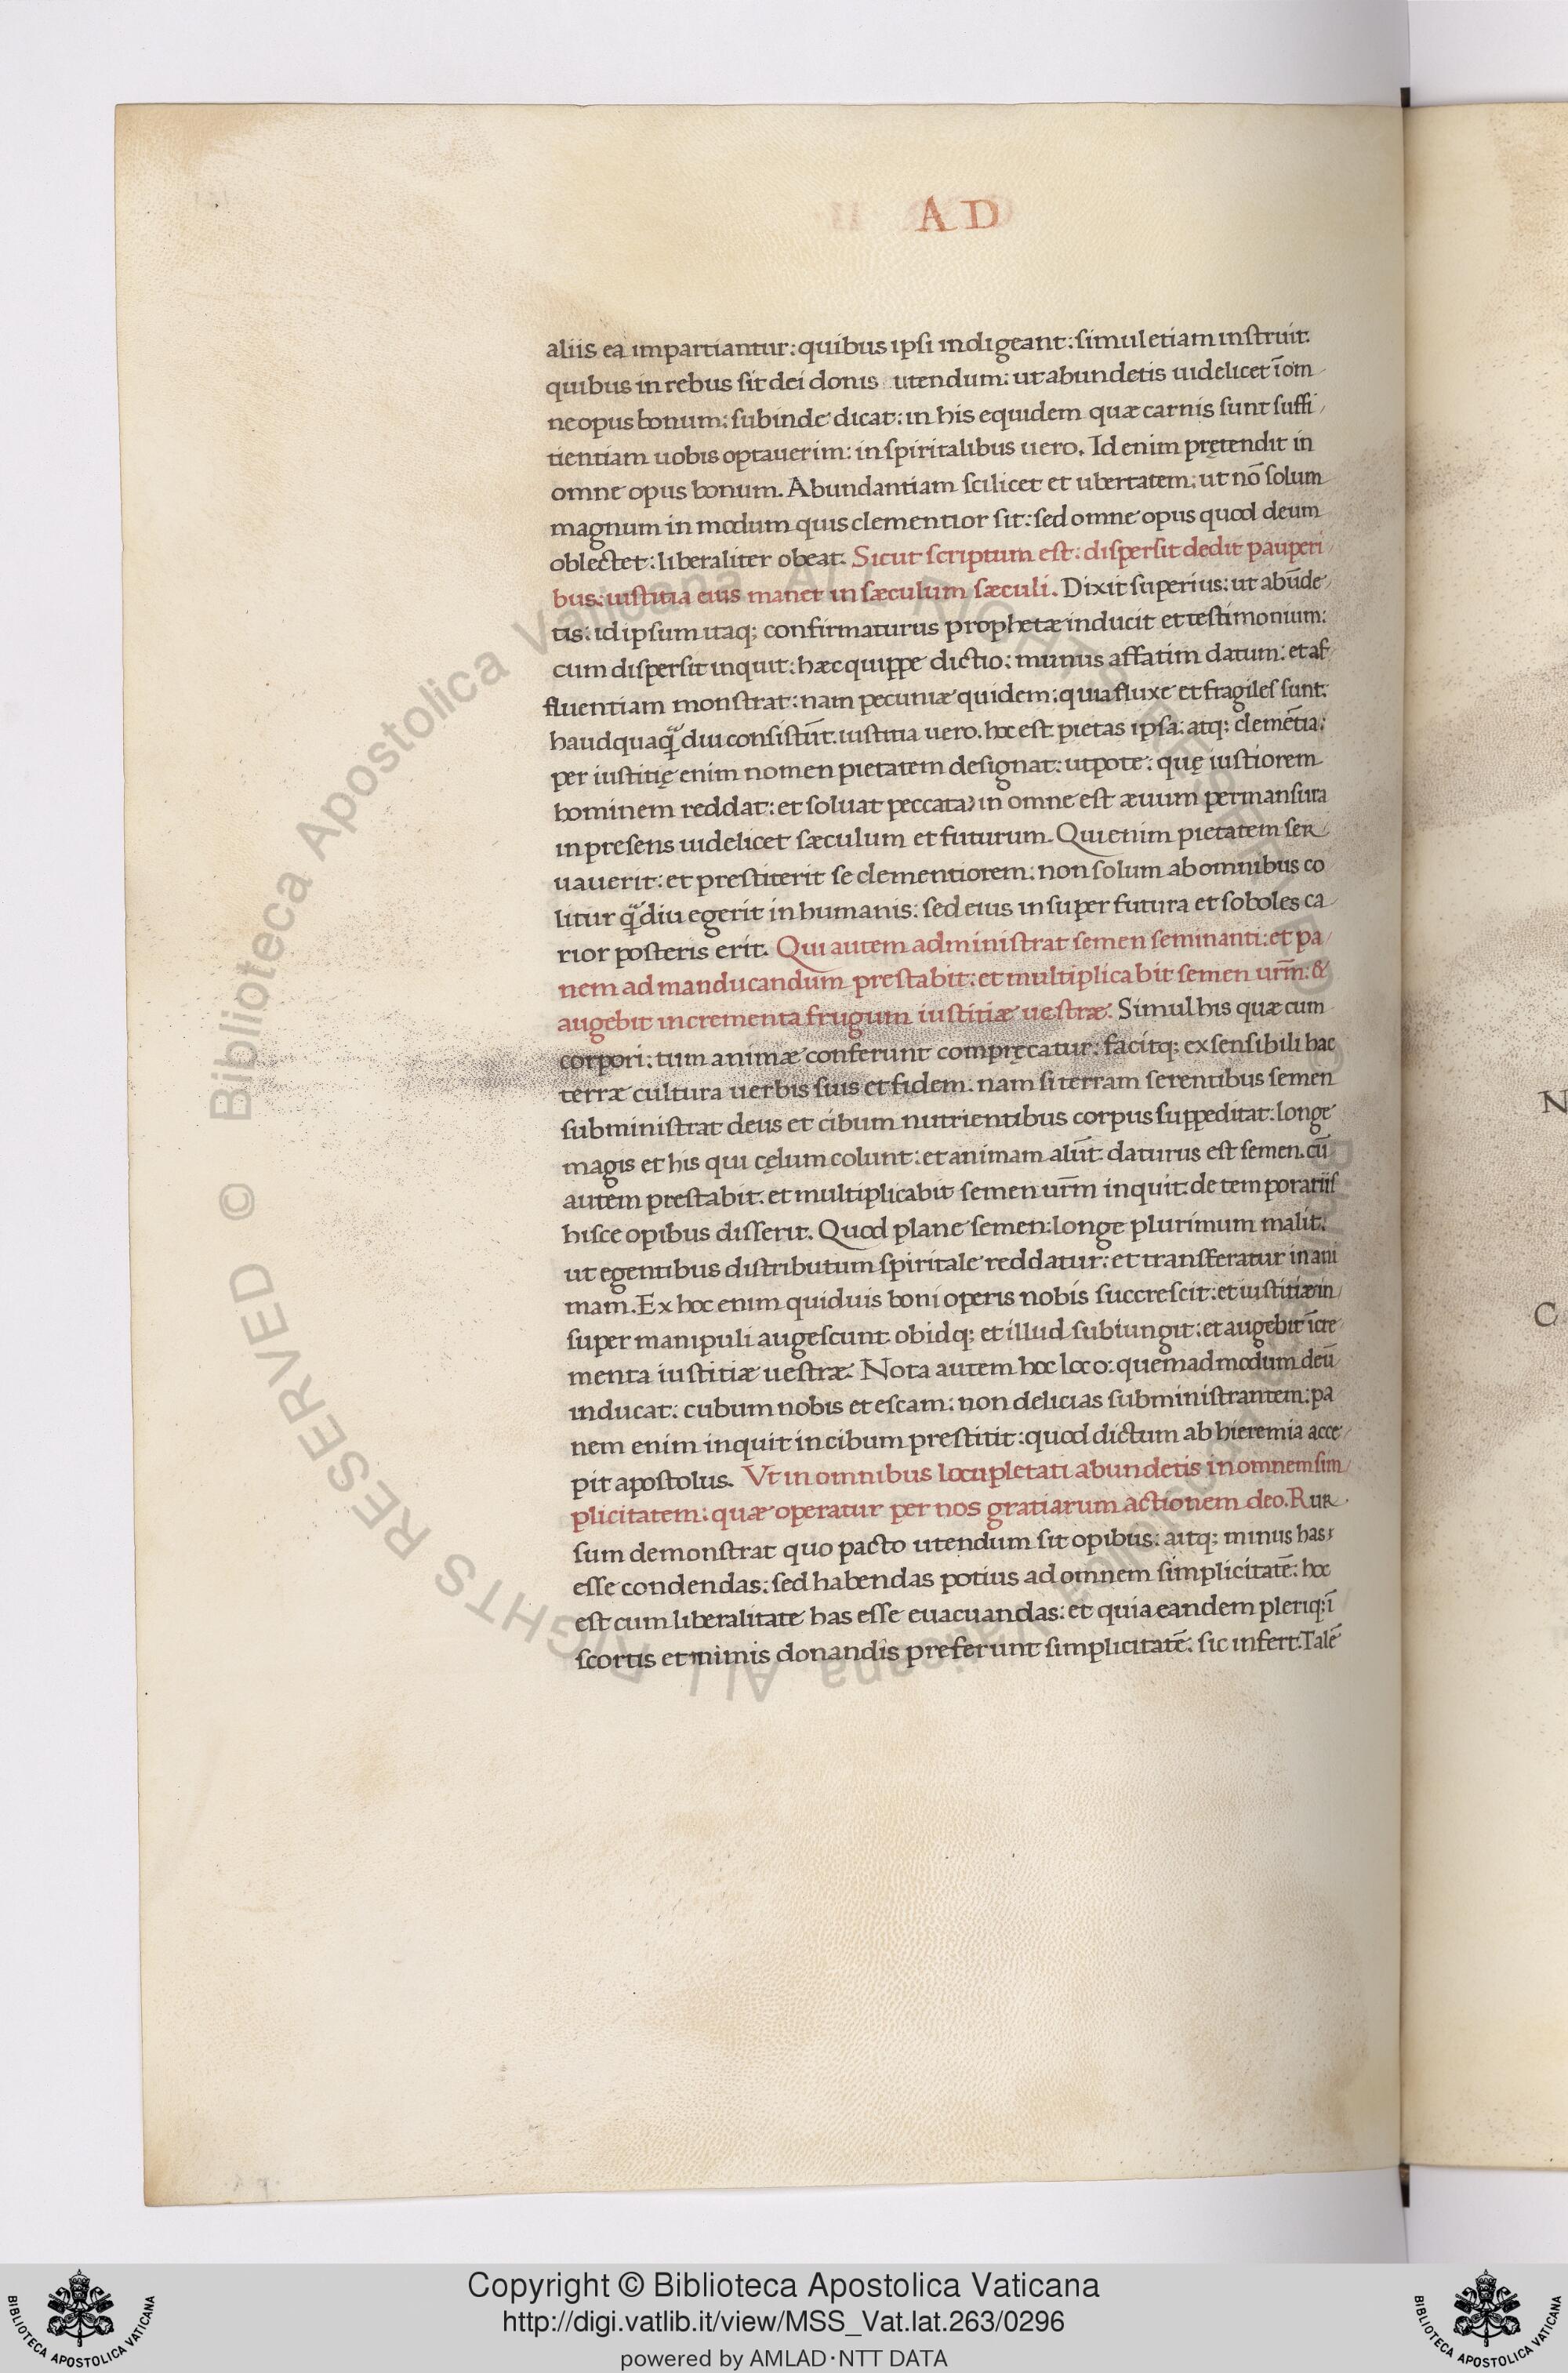 AD
aliis ea impartiantur: quibus ipsi indigeant: simul etiam instruit.
quibus in rebus sit dei donis utendum: ut abundetis uidelicet īom
ne opus bonum: subinde dicat: in his equidem quæ carnis sunt suffi
tientiam uobis optauerim: in spiritalibus uero. Id enim prętendit in
omne opus bonum. Abundantiam scilicet et ubertatem: ut nō solum
magnum in modum quis clementior sit: sed omne opus quod deum
oblectet: liberaliter obeat. Sicut scriptum est: dispersit dedit pauperi
bus: iustitia eius manet in sæculum sæculi. Dixit superius: ut abūde
tis: id ipsum itaq; confirmaturus prophetæ inducit et testimonium:
cum dispersit inquit: hæc quippe dictio: munus affatim datum: et af
fluentiam monstrat: nam pecuniæ quidem: quia fluxe et fragiles sunt:
haudquaq̃ diu consistūt. iustitia uero. hoc est pietas ipsa: atq; clemētia:
per iustitię enim nomen pietatem designat: utpote: quę iustiorem
hominem reddat: et soluat peccata) in omne est æuum permansura
in presens uidelicet sæculum et futurum. Qui enim pietatem ser
uauerit: et prestiterit se clementiorem: non solum ab omnibus co
litur q̃diu egerit in humanis: sed eius insuper futura et soboles ca
rior posteris erit. Qui autem administrat semen seminanti: et pa
nem ad manducandum prestabit: et multiplicabit semen urm̄: &
augebit incrementa frugum iustitiæ uestræ. Simul his quæ cum
corpori: tum animæ conferunt compręcatur: facitq; ex sensibili hac
terræ cultura uerbis suis et fidem. nam si terram serentibus semen
subministrat deus et cibum nutrientibus corpus suppeditat: longe
magis et his qui cęlum colunt: et animam alūt: daturus est semen. cū
autem prestabit: et multiplicabit semen urm̄ inquit: de temporariis
hisce opibus disserit. Quod plane semen: longe plurimum malit:
ut egentibus distributum spiritale reddatur: et transferatur in ani
mam. Ex hoc enim quiduis boni operis nobis succrescit: et iustitiæ in
super manipuli augescunt. obidq; et illud subiungit: et augebit īcre
menta iustitiæ uestræ. Nota autem hoc loco: quemadmodum deū
inducat: cubum nobis et escam: non delicias subministrantem: pa
nem enim inquit in cibum prestitit: quod dictum ab hieremia acce
pit apostolus. Vt in omnibus locupletati abundetis in omnem sim
plicitatem: quæ operatur per nos gratiarum actionem deo. Rur
sum demonstrat quo pacto utendum sit opibus: aitq; minus has
esse condendas: sed habendas potius ad omnem simplicitatē: hoc
est cum liberalitate has esse euacuandas: et quia eandem pleriq; ī
scortis et mimis donandis preferunt simplicitatē: sic infert. Talē
N
C
© Biblioteca Apostolica Vaticana ALL RIGHTS RESERVED
© Biblioteca Apostolica Vaticana ALL RIGHTS RESERVED
Copyright © Biblioteca Apostolica Vaticana
http://digi.vatlib.it/view/MSS_Vat.lat.263/0296
powered by AMLAD·NTT DATA
BIBLIOTECA APOSTOLICA VATICANA
BIBLIOTECA APOSTOLICA VATICANA